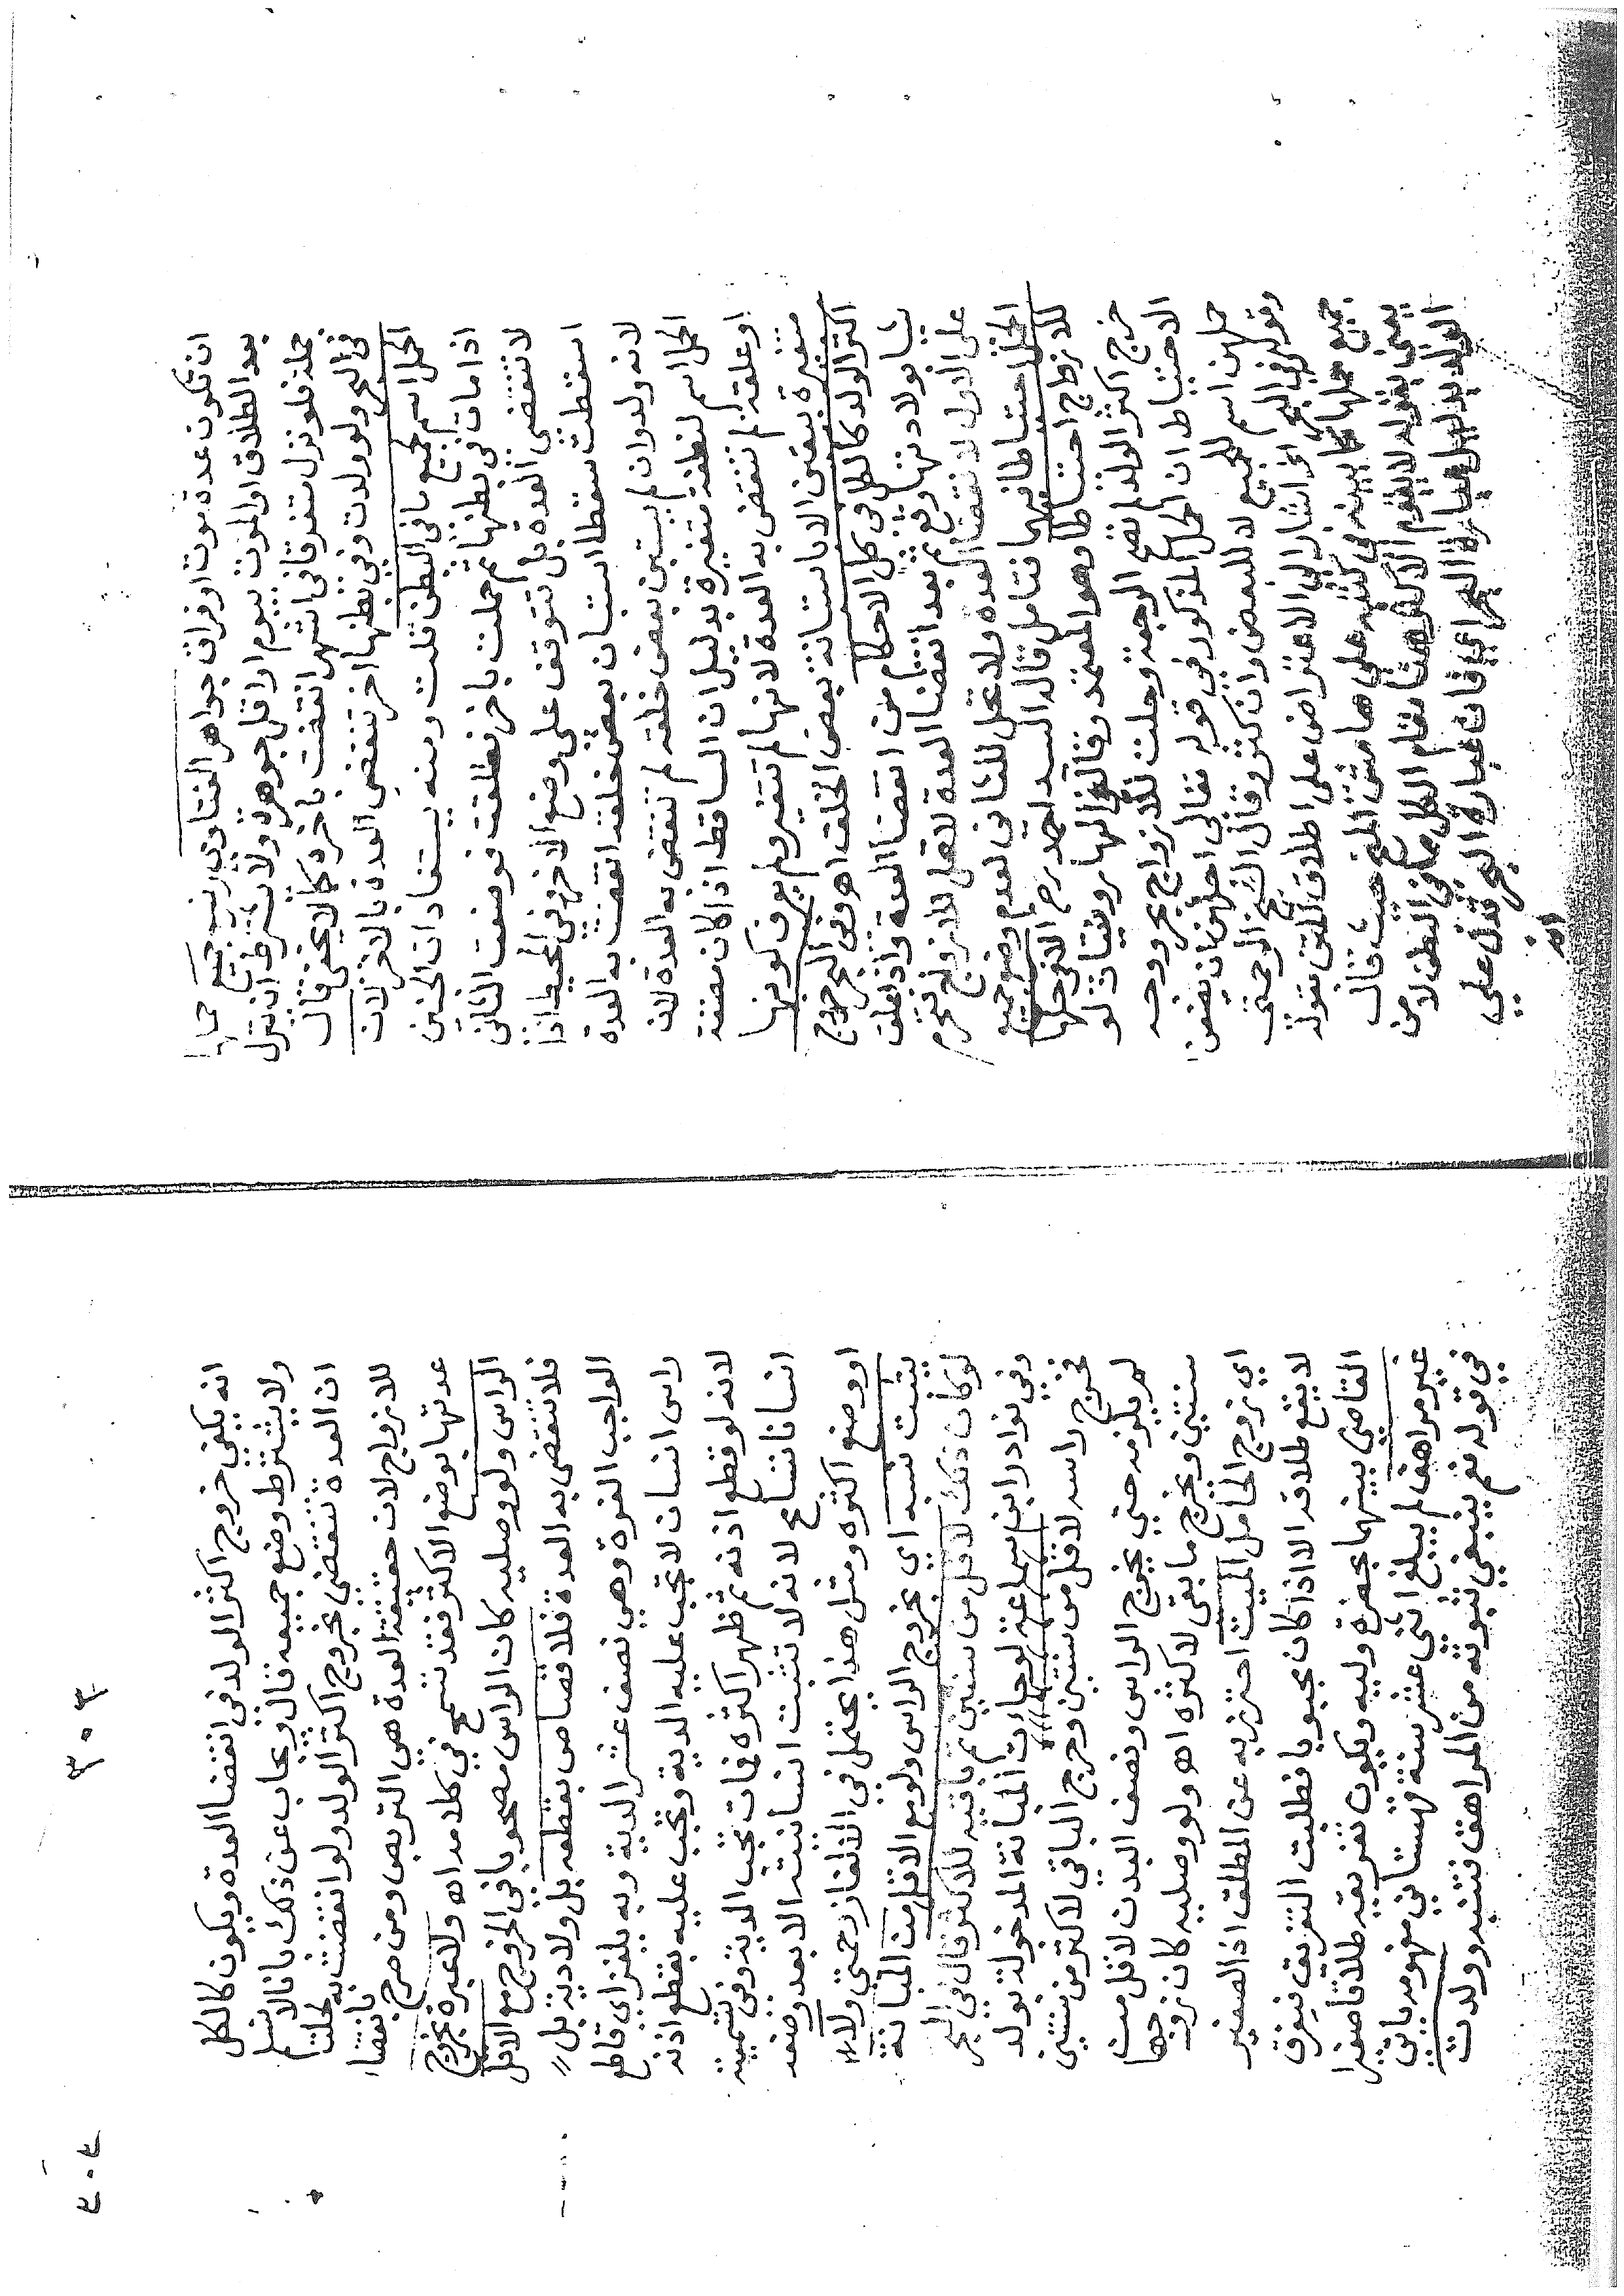 ان تكون عدة موت او فراق جواهر الفتاوي زيب جميع حملها
بعد الطلاق او الموت بيوم او اقل جوهرة ولا يشترط ان تنزل
جملة فلو نزل متفرقا في اشهر انقضت بآخره كما لا يخفى قال
في البحر ولو ولدت وفي بطنها اخر تنقضي العدة بالاخر لان
الحمل اسم لجميع ما في البطن قلت ومنه يستفاد ان الجنين
اذا مات في بطنها ثم حملت باخر فطلقت فوضعت الثاني
لا تنقضي العدة بل تتوقف على وضع الاخر وفي المحيط اذا
اسقطت سقطا استبان بعض خلقه انقضت به العدة
لانه ولد وان لم يستبن بعض خلقه لم تنقض به العدة لان
الحمل اسم لنطفة متغيرة بدليل ان الساقط اذا كان مضغة
او علقة لم تنقض به العدة لانها لم تتغير ولم يعرف كونها
متغيرة بيقين الا باستبانة بعض الخلق اهـ وفي البحر خروج
اكثر الولد كالكل في كل الاحكام من انقضا العدة واذا علق
شيا بولادتها وقع ثم بعد انقضا العدة لا تحل للازواج تحرم
على الاول لانقضا العدة ولا تحل للثاني لعدم وضع جميع
الحمل احتياطا فيهما فتامل قاله السيد احمد رحـ الله وحلها
للازواج احتياطا وهو المعتمد وقال في النهاروينيات لو
خرج اكثر الولد لم تصح الرجعة وحلت للازواج بحر ووجه
الاحتياط ان الحمل المذكور في قوله تعالى اجلهن ان يضعن
حملهن اسم للجميع لا للبعض وان كثر وقال الشيخ الرحمتي
وقوله في البحر الخ اشار الى الاعتراض على اطلاق المتن بقوله
جميع حملها كما بينه في كتابه على هامش المنح حيث قال
يعني بقوله لا يقوم الاكثر هنا مقام الكل مما في البطن لا من
الولد بدليل عبارة البحر اي فان عبارة البحر تدل على
انه
انه يكفي خروج اكثر الولد في انقضا العدة ويكون كالكل
ولا يشترط وضع جميعه قال ويجاب عن ذلك بانا لا نسلم
ان العدة تنقضي بخروج اكثر الولد ولو انقضت به لحلت
للازواج لان حقيقة العدة هي التربص ومن صرح بانقضاء
عدتها بوضع الاكثر فقد تسمح في كلامه اهـ ولا عبرة بخروج
الراس ولو وصليه كان الراس مصحوبا في الخروج مع الاقل
فلا تنقضي به العدة فلا قصاص بقطعه بل ولا دية بل
الواجب الغرة وهي نصف عشر الدية وبه يلغز اي قاطع
راس انسان لا تجب عليه الدية وتجب عليه بقطع اذنه
لانه لو قطع اذنه ثم ظهر اكثره فمات تجب الدية وفي تسميته
انسانا تسامح لانه لا تثبت انسانيته الا بعد وضعه
او وضع اكثره ومثل هذا يحتمل في الالغاز رحمتي ولا
يثبت نسبه اي بخروج الراس ولو مع الاقل من المبانة
لو كان ذلك لاقل من سنتين ثم باقيه للاكثر قال في البحر
وفي نوادر ابن سماعة لو جاءت المبانة المدخولة بولد
فخرج راسه لاقل من سنتين وخرج الباقي لاكثر من سنتين
لم يلزمه حتى يخرج الراس ونصف البدن لاقل من
سنتين ويخرج ما بقي لاكثر اهـ ولو وصليه كان زوجها
اي زوج الحامل الميت احترز به عن المطلق اذ الصغير
لا يقع طلاقه الا اذا كان مجبوبا فطلبت التفريق فيفرق
القاضي بينهما بحضرة وليه ويكون تفريقه طلاقا صغيرا
غير مراهق لم يبلغ اثنى عشر سنة قهستاني مفهومه ياتي
في قوله نعم ينبغي ثبوته من المراهق فتنبه وولدت
٣٠٣
٣٠٤